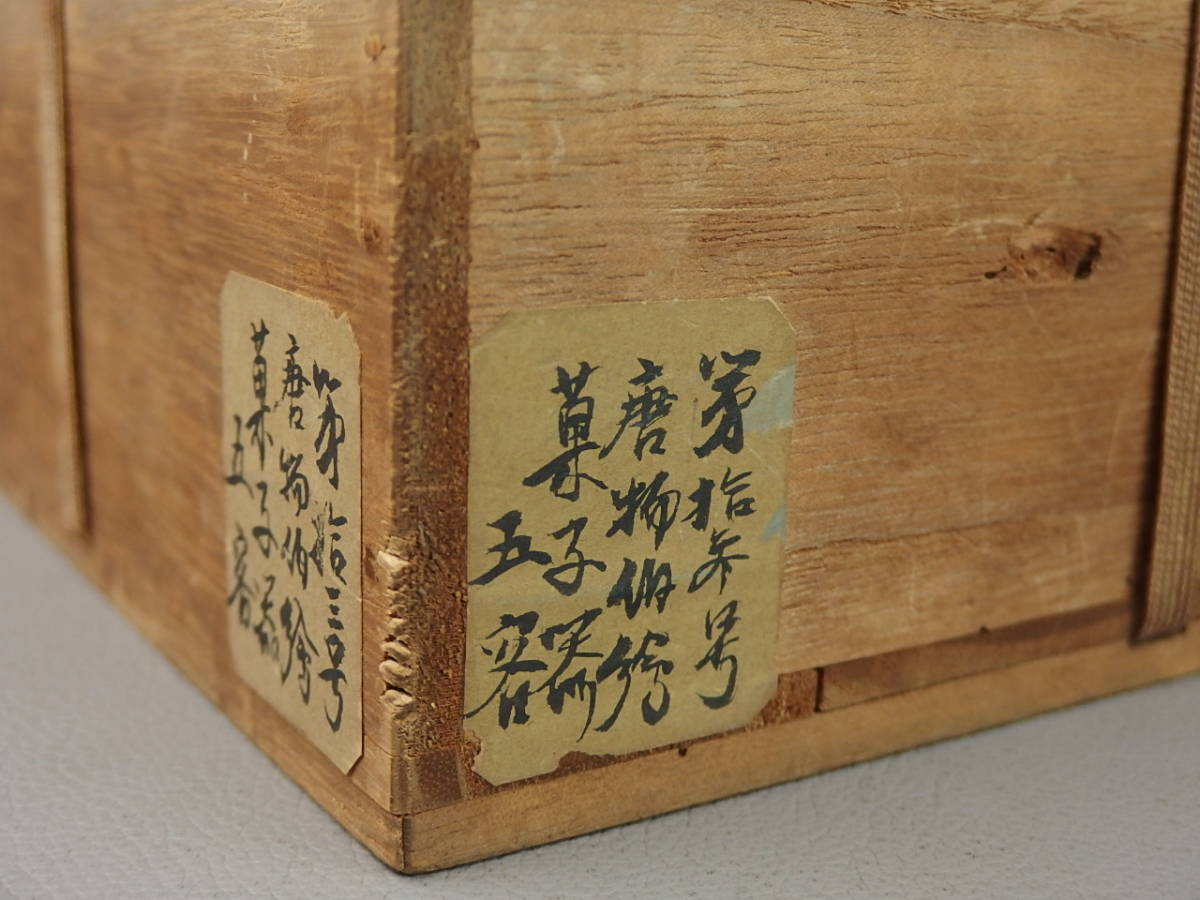 第拾参号
唐物
菓子器
五客
第拾三号
唐物
菓子器
五客